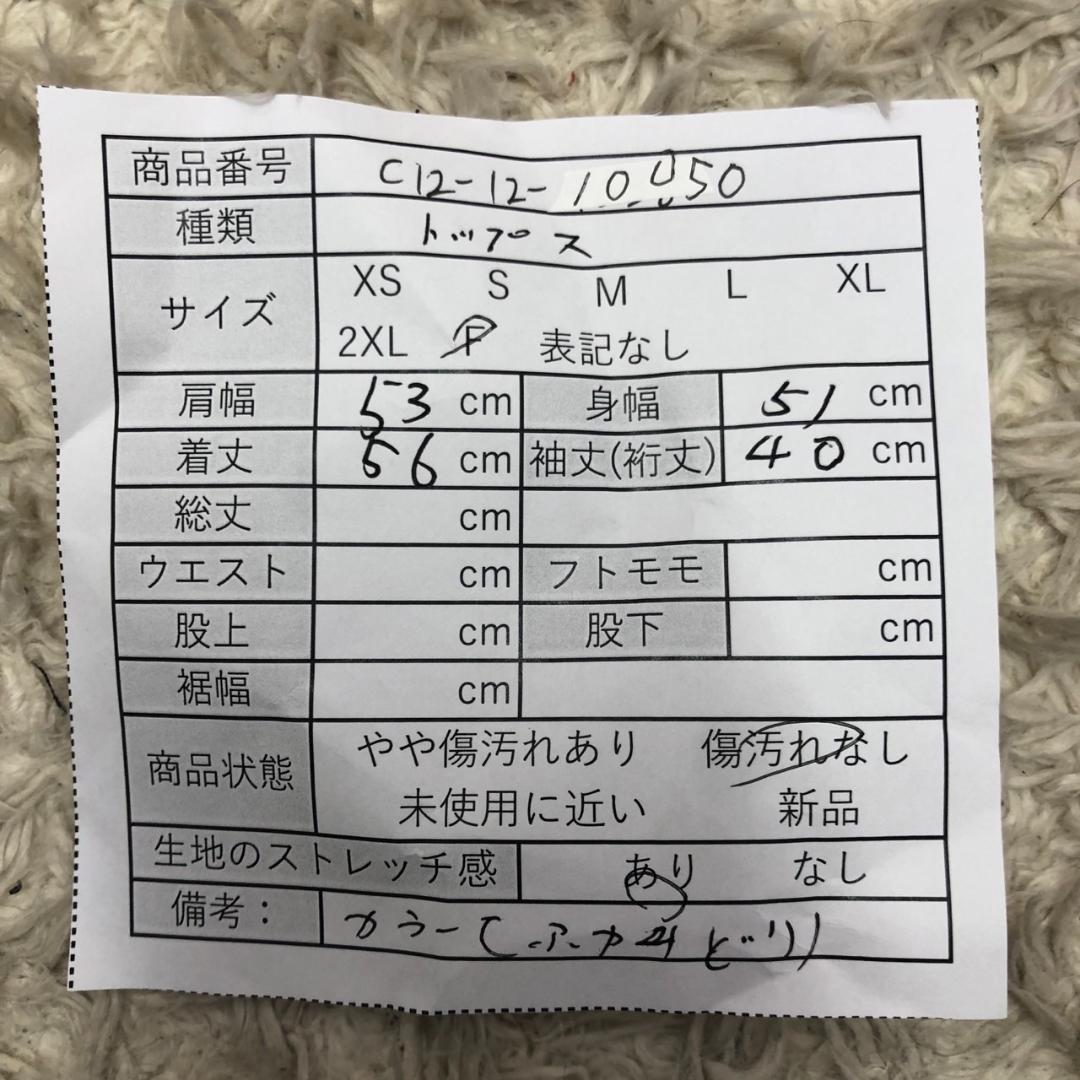 商品番号 C12-12-10050
種類 トップス
サイズ XS S M L XL
2XL F 表記なし
肩幅 53 cm 身幅 51 cm
着丈 56 cm 袖丈(裄丈) 40 cm
総丈 cm
ウエスト cm フトモモ cm
股上 cm 股下 cm
裾幅 cm
商品状態 やや傷汚れあり 傷汚れなし
未使用に近い 新品
生地のストレッチ感 あり なし
備考: カラー(ふかみどり)